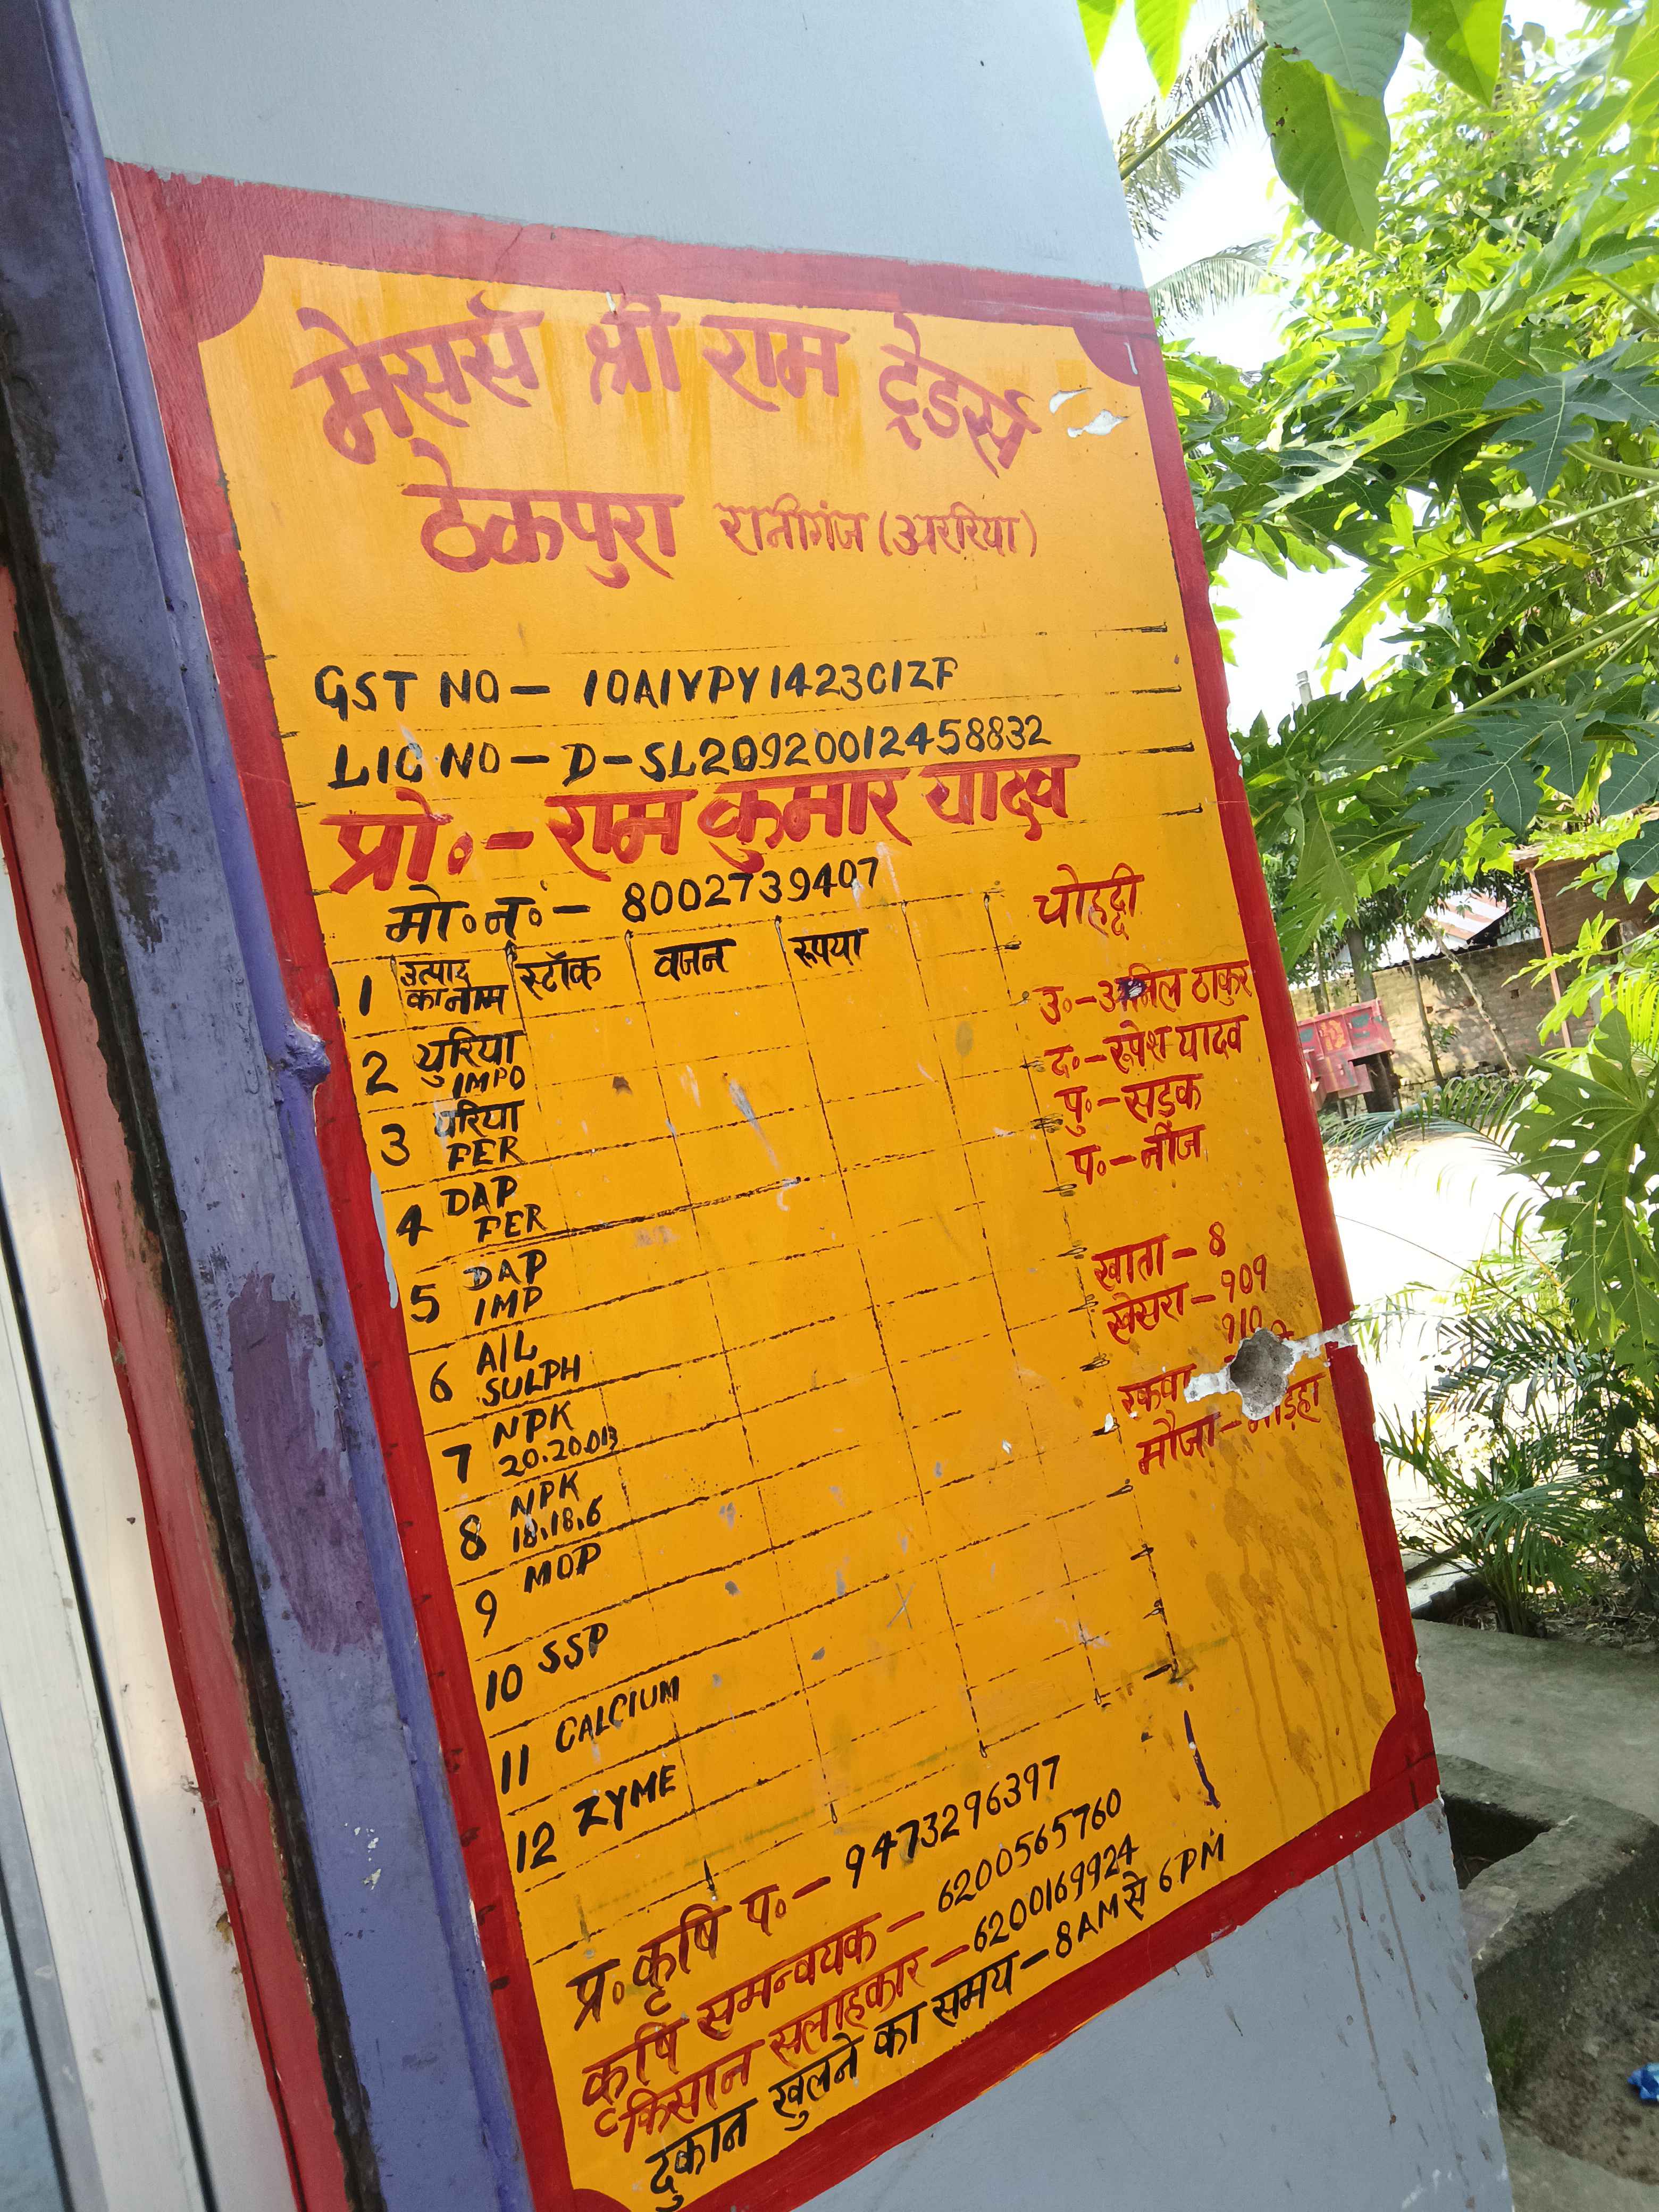 मेसर्स श्री राम ट्रेडर्स
ठेकपुरा रानीगंज (अररिया)
GST NO - 10AIVPY1423C1ZF
LIC NO - D-SL20920012458832
प्रो॰ - राम कुमार यादव
मो॰ न॰ - 8002739407
1 उत्पाद का नाम स्टॉक वजन रूपया
2 युरिया IMPO
3 यरिया FER
4 DAP FER
5 DAP IMP
6 A/L SULPH
7 NPK 20.20.013
8 NPK 18.18.6
9 MOP
10 SSP
11 CALCIUM
12 ZYME
चोहद्दी
उ॰ - अनिल ठाकुर
द॰ - रूपेश यादव
पु॰ - सड़क
प॰ - नींज
खाता - 8
खेसरा - 909
910
रकवा
मौजा -
प्र॰ कृषि प॰ - 9473296397
कृषि समन्वयक - 6200565760
किसान सलाहकार - 6200169924
दुकान खुलने का समय - 8 AM से 6 PM